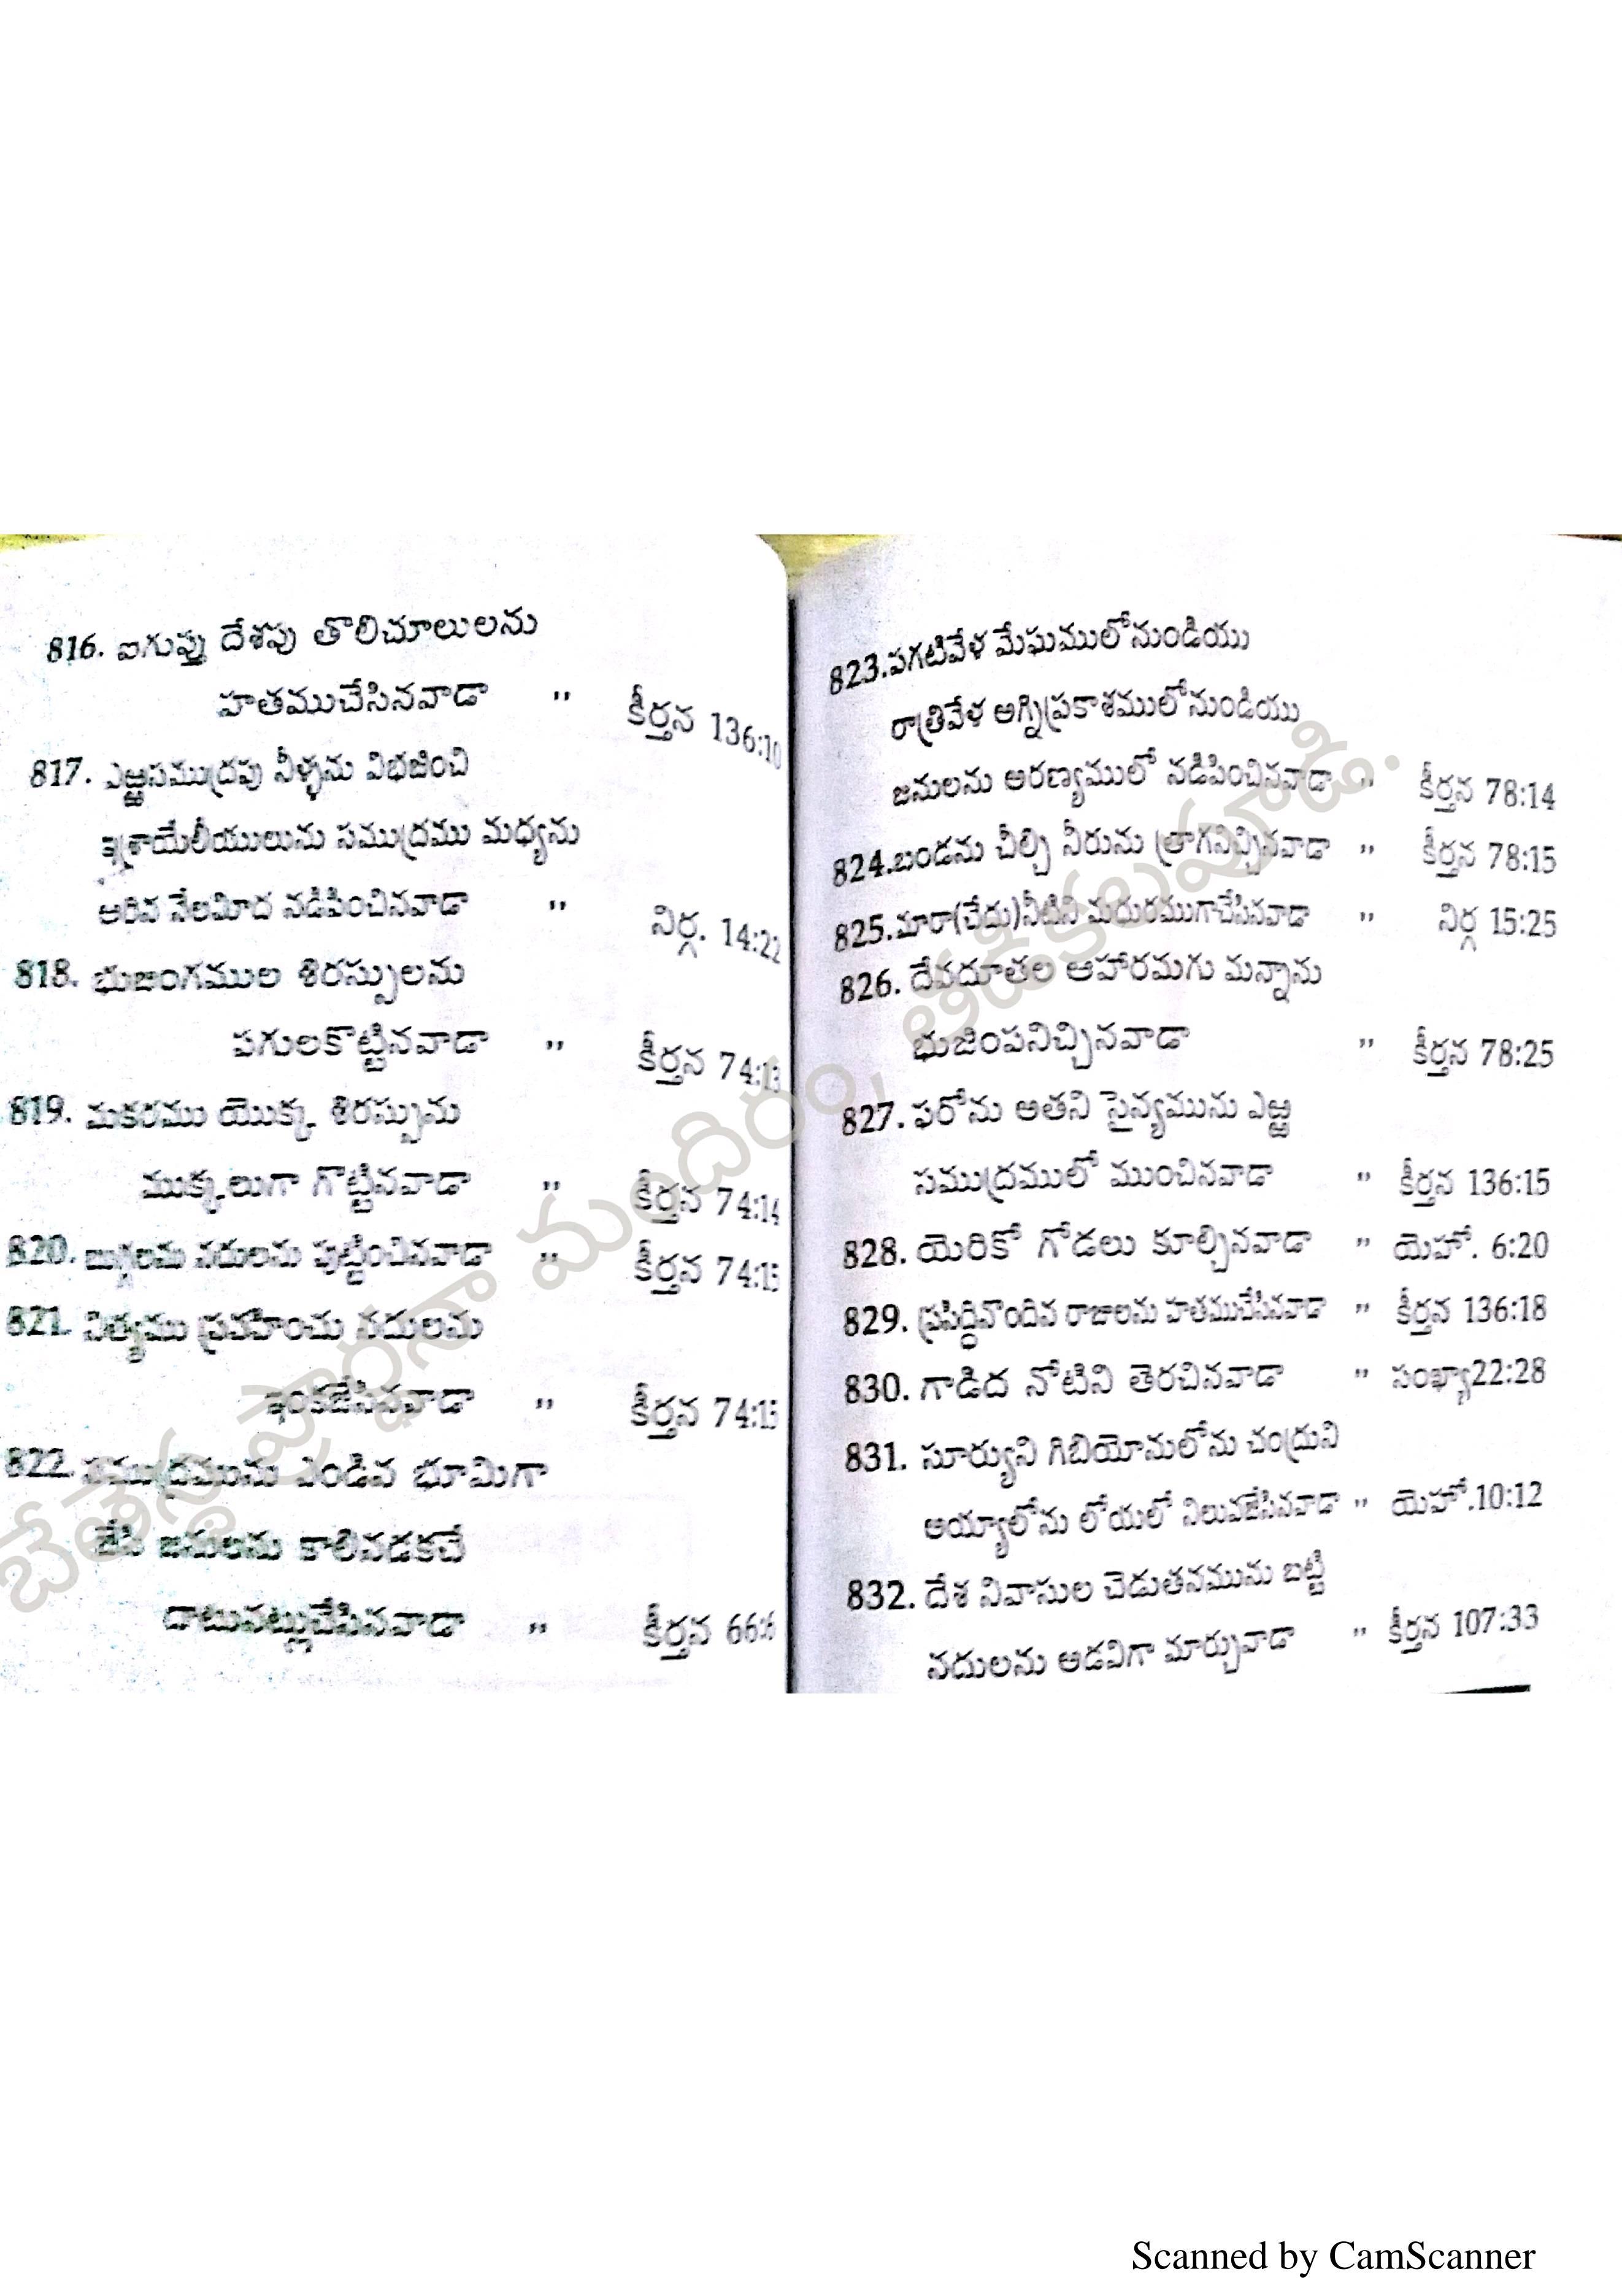 816. ఐగుప్తు దేశపు తొలిచూలులను
హతముచేసినవాడా " కీర్తన 136:10
817. ఎఱ్ఱసముద్రపు నీళ్ళను విభజించి
ఇశ్రాయేలీయులును సముద్రము మధ్యను
ఆరిన నేలమీద నడిపించినవాడా " నిర్గ. 14:22
818. భుజంగముల శిరస్సులను
పగులకొట్టినవాడా " కీర్తన 74:13
819. మకరము యొక్క శిరస్సును
ముక్కలుగా గొట్టినవాడా " కీర్తన 74:14
820. బుగ్గలను నదులను పుట్టించినవాడా " కీర్తన 74:15
821. నిత్యము ప్రవహించు నదులను
ఇంకజేసినవాడా " కీర్తన 74:15
822. సముద్రమును ఎండిన భూమిగా
జేసి జనులను కాలినడకచే
దాటునట్లుచేసినవాడా " కీర్తన 66:6
823.పగటివేళ మేఘములోనుండియు
రాత్రివేళ అగ్నిప్రకాశములోనుండియు
జనులను అరణ్యములో నడిపించినవాడా " కీర్తన 78:14
824.బండను చీల్చి నీరును త్రాగనిచ్చినవాడా " కీర్తన 78:15
825.మారా(చేదు)నీటిని మదురముగాచేసినవాడా " నిర్గ 15:25
826. దేవదూతల ఆహారమగు మన్నాను
భుజింపనిచ్చినవాడా " కీర్తన 78:25
827. ఫరోను అతని సైన్యమును ఎఱ్ఱ
సముద్రములో ముంచినవాడా " కీర్తన 136:15
828. యెరికో గోడలు కూల్చినవాడా " యెహో. 6:20
829. ప్రసిద్ధినొందిన రాజులను హతముచేసినవాడా " కీర్తన 136:18
830. గాడిద నోటిని తెరచినవాడా " సంఖ్యా22:28
831. సూర్యుని గిబియోనులోను చంద్రుని
అయ్యాలోను లోయలో నిలువజేసినవాడా " యెహో.10:12
832. దేశ నివాసుల చెడుతనమును బట్టి
నదులను అడవిగా మార్చువాడా " కీర్తన 107:33
బేతెస్థ ప్రార్థనా మందిరం, తాడికలపూడి.
Scanned by CamScanner